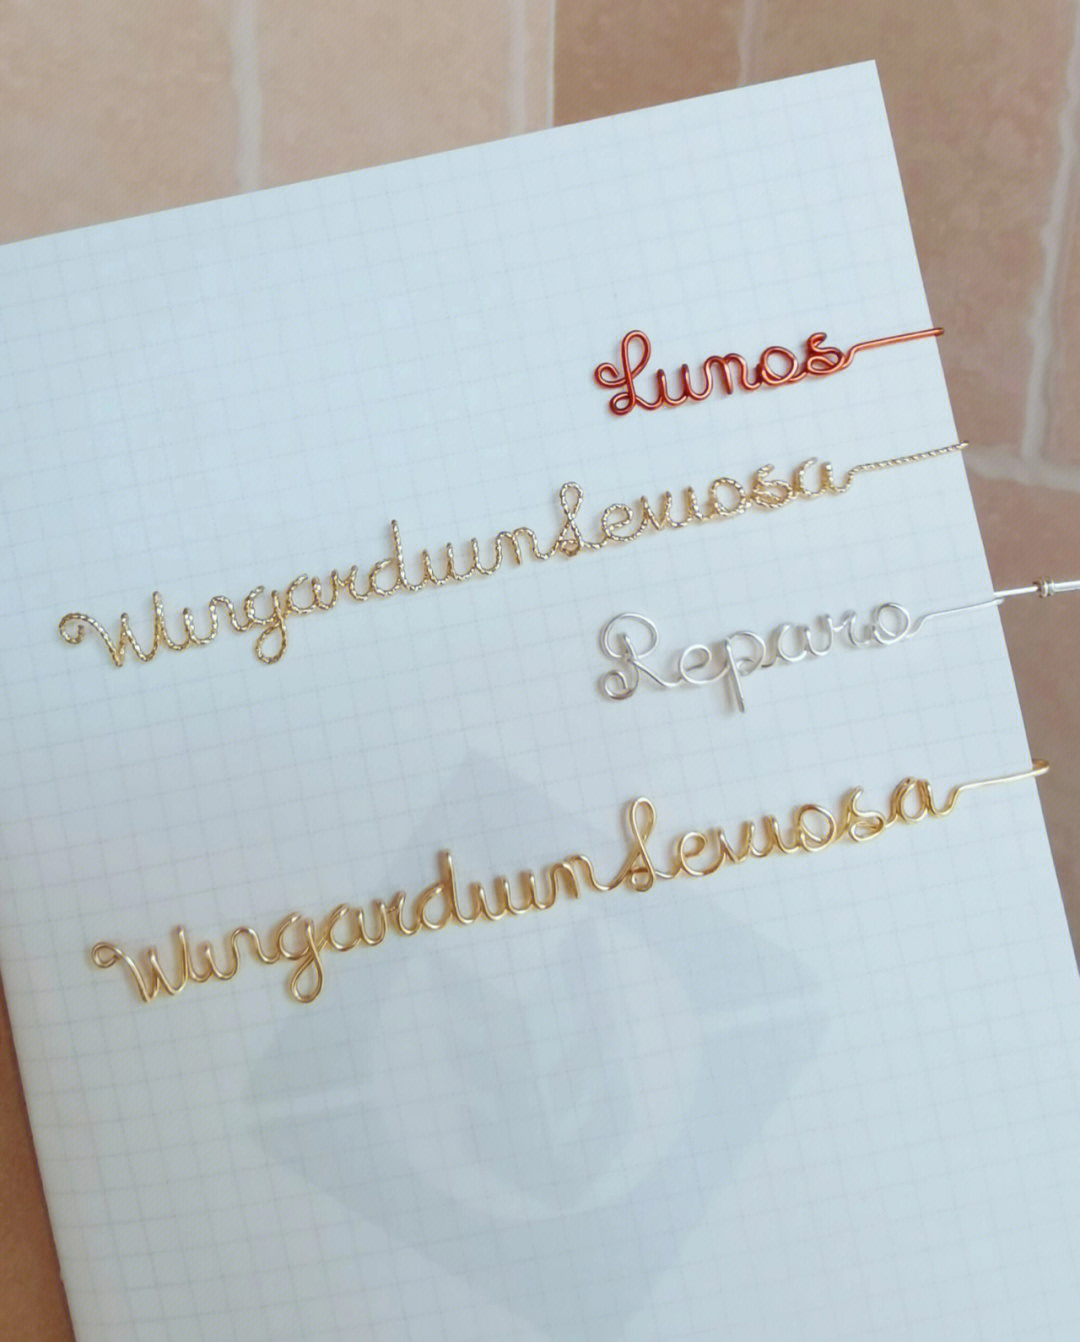 Lumos
WingardiumLeviosa
Reparo
WingardiumLeviosa